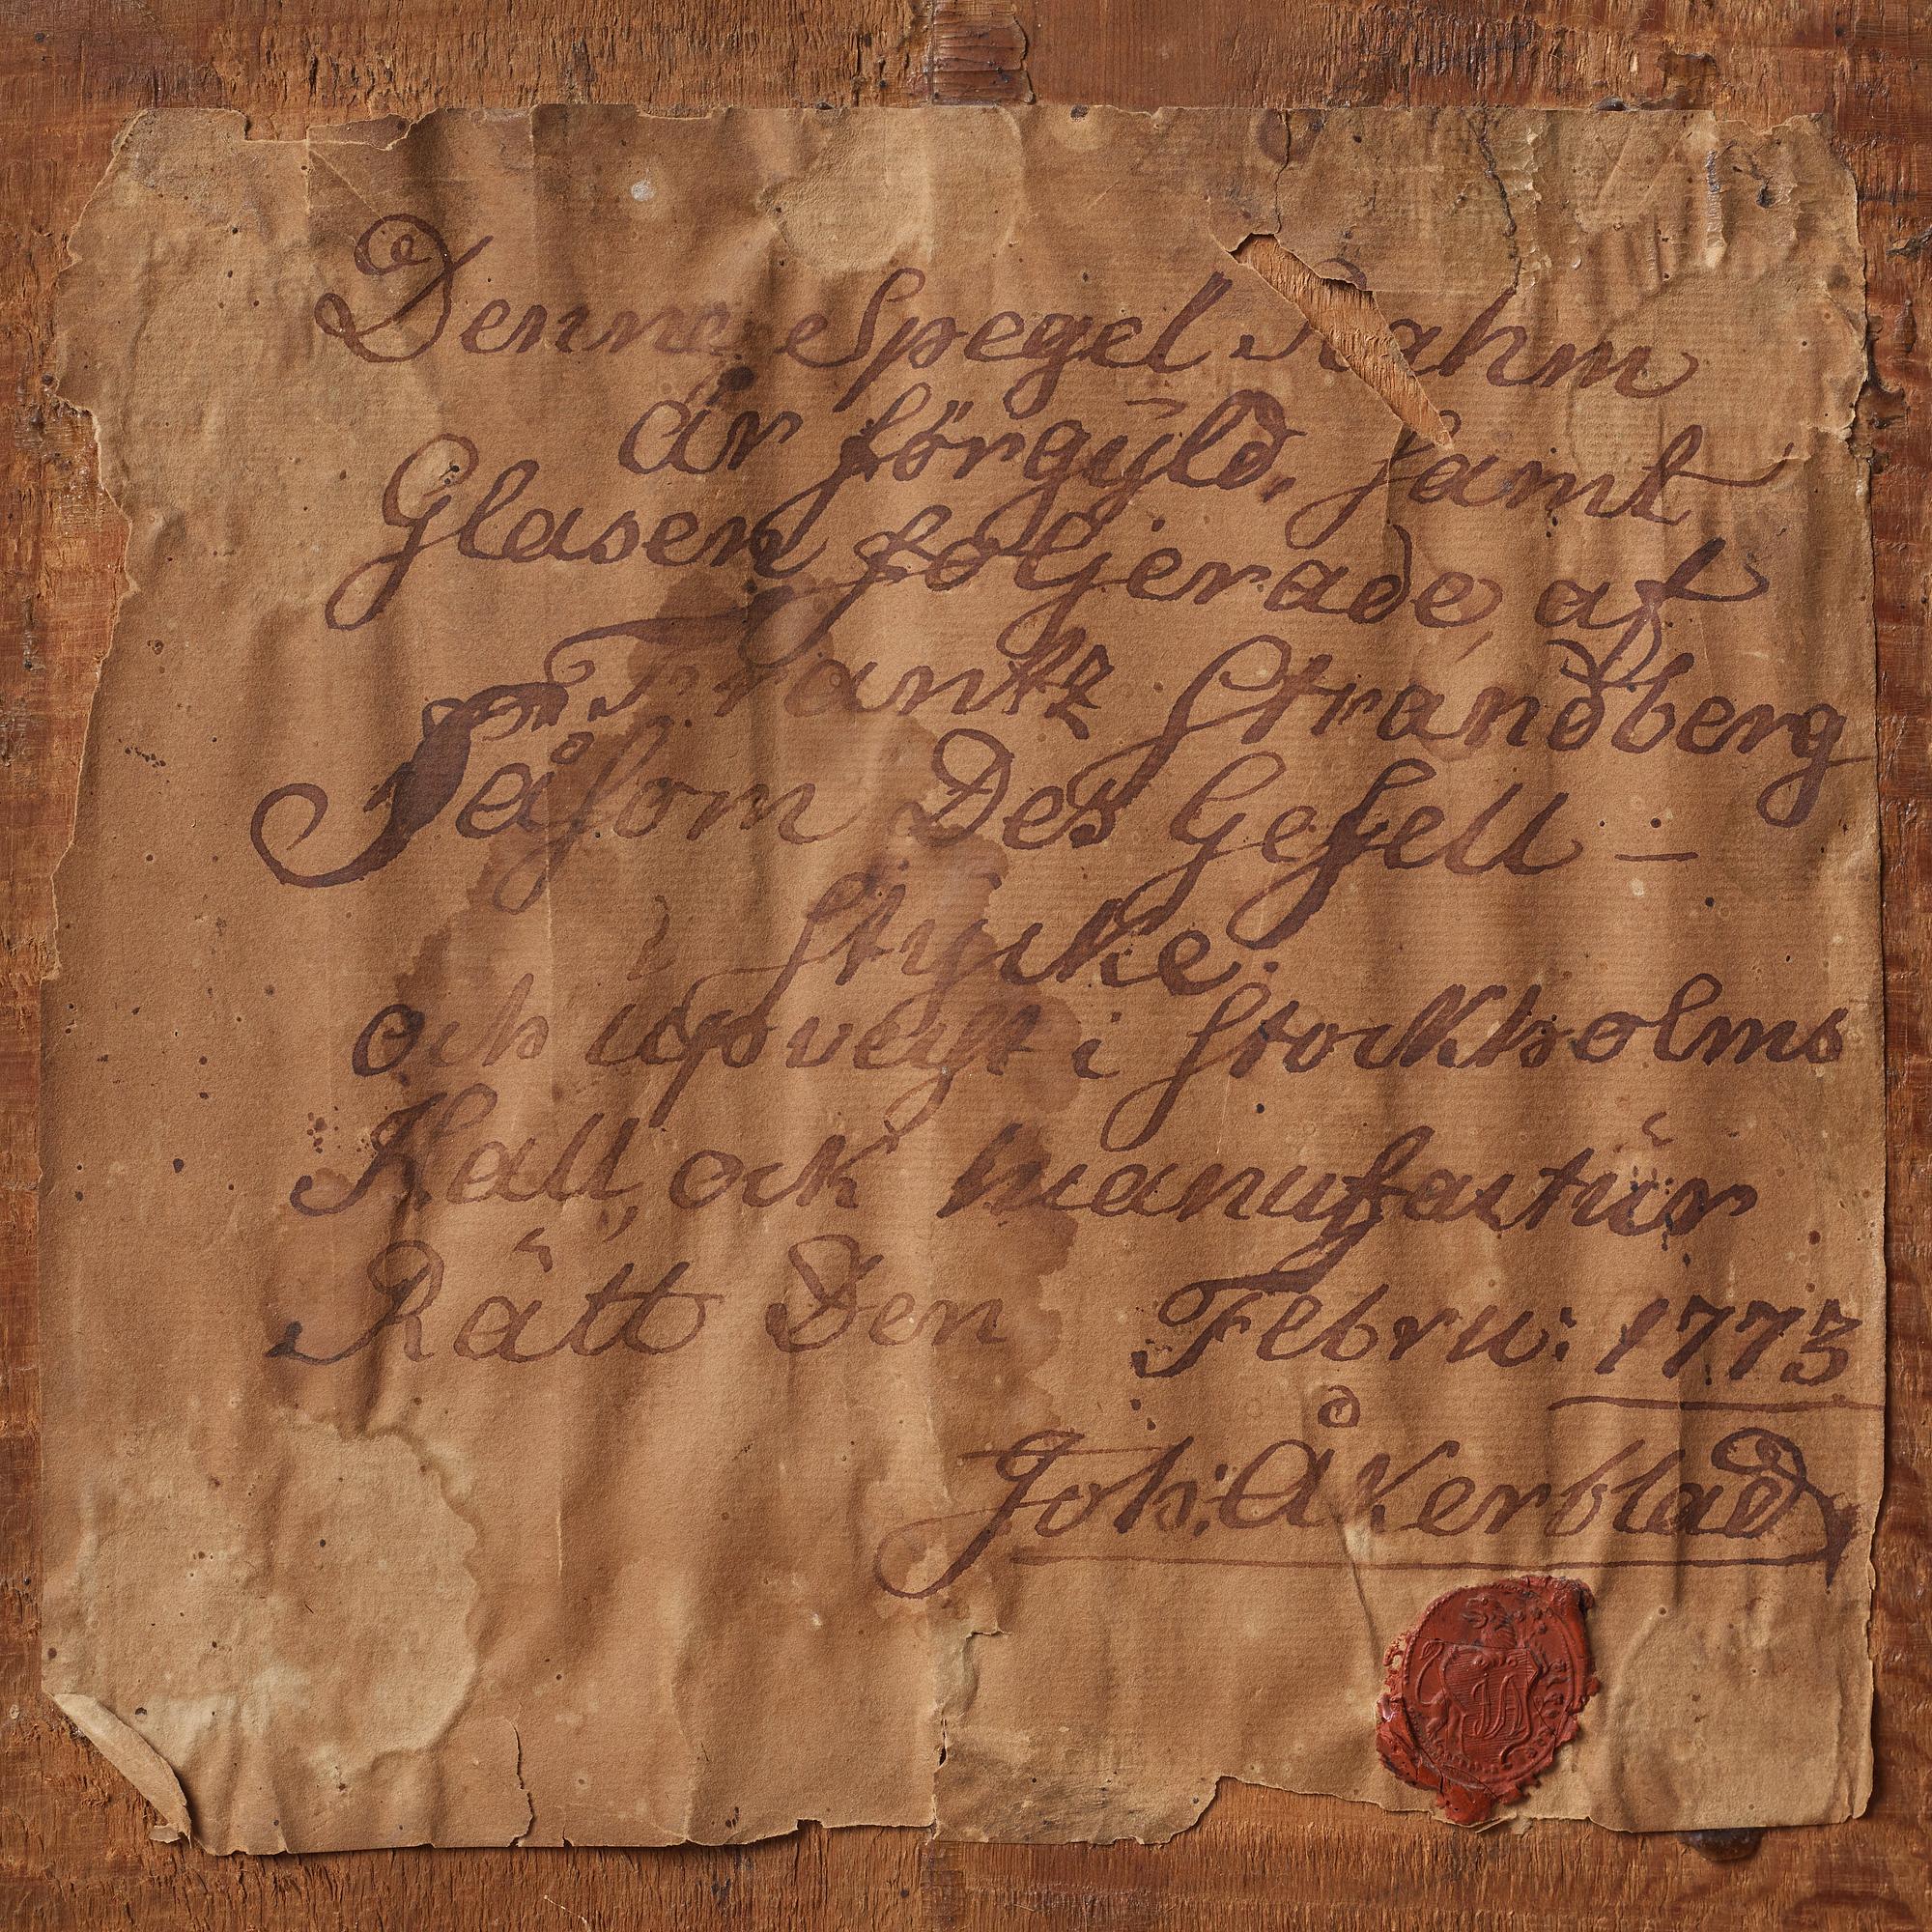 Denne Spegel Rahm
är förgÿld, samt
Glasen foljerade af
Frantz Strandberg
Såsom Des Gesell –
Stycke.
och upvegt i Stockholms
Hall, ock manufactur
Rätt Den Febru: 1773
Joh: Åkerblad